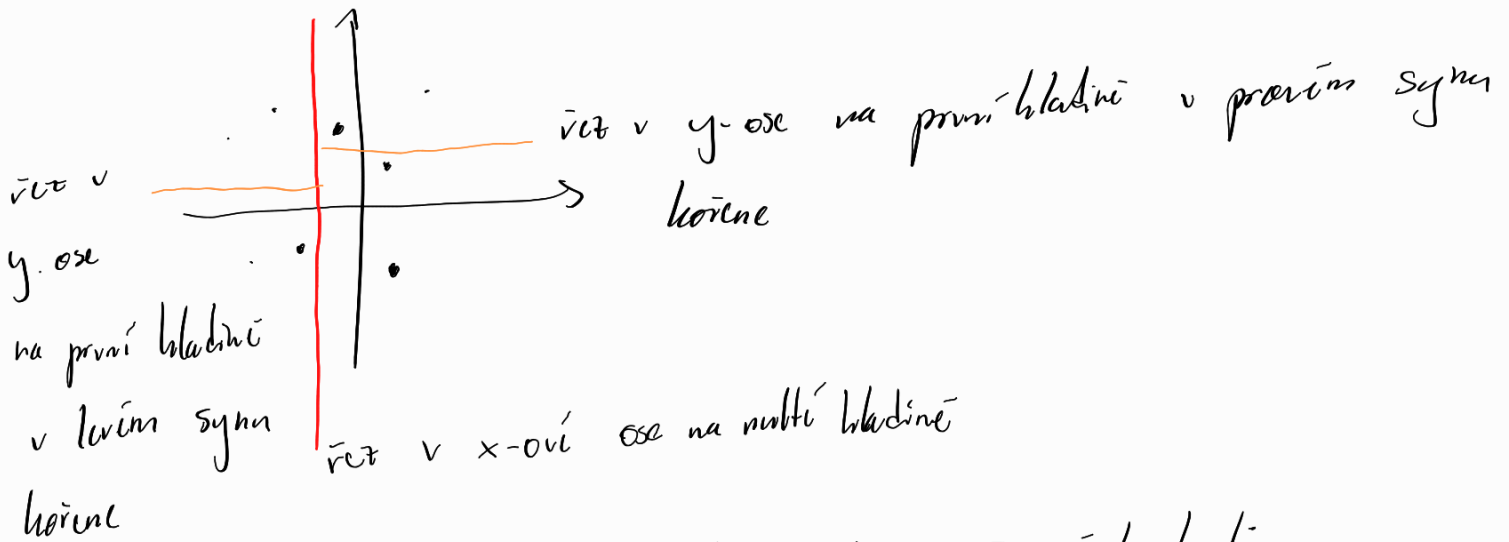 řez v y-ose na první hladině v pravém synu
kořene
řez v
y-ose
na první hladině
v levém synu
kořene
řez v x-ové ose na nulté hladině